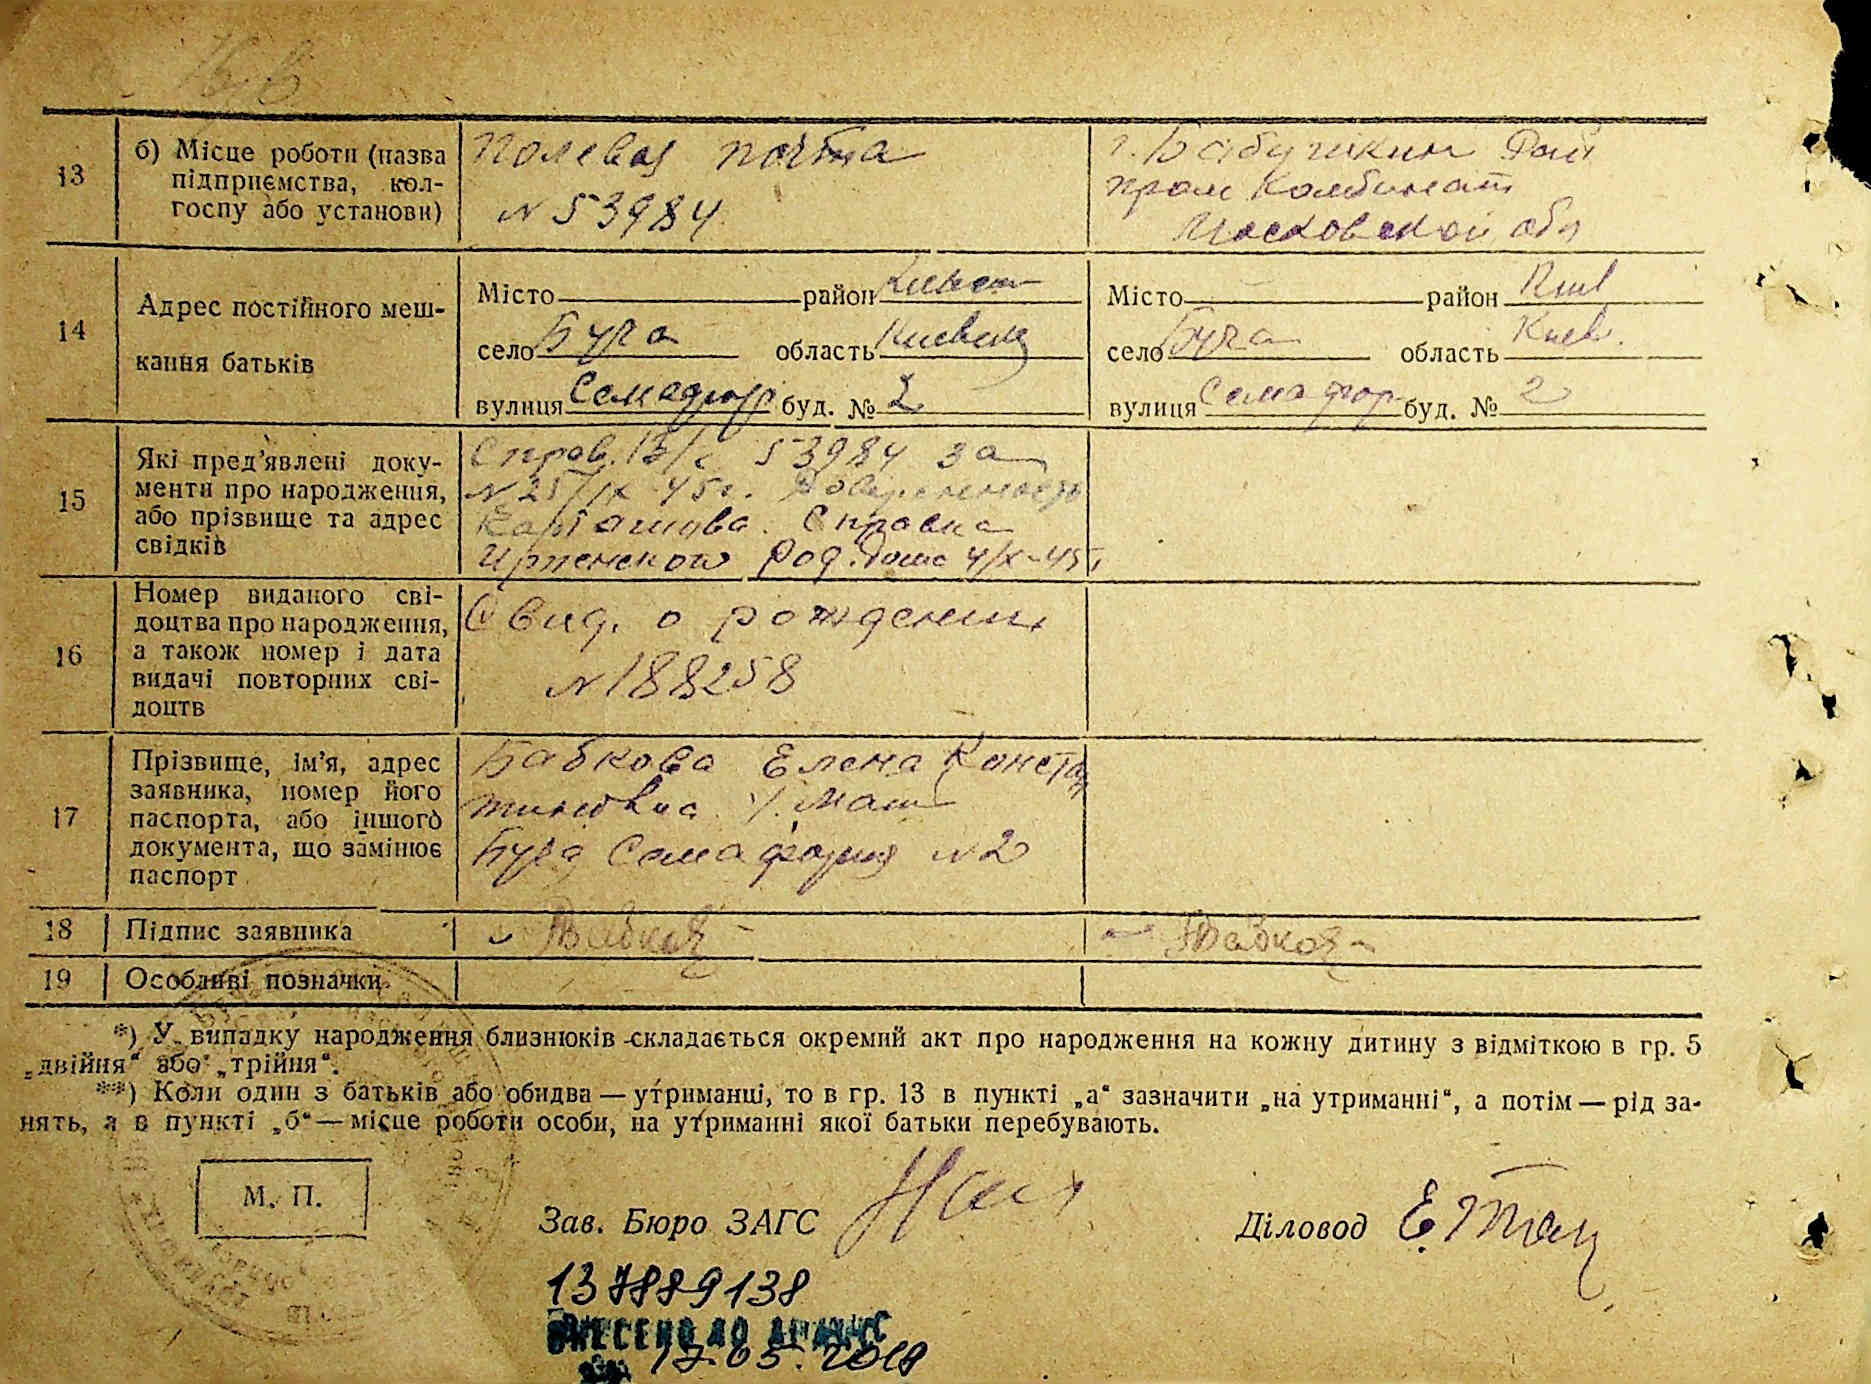 13
б) Місце роботи (назва
підприємства, кол-
госпу або установи)
Полевая почта
№ 53984
г. Бабушкин Рай
пром Комбинат
Московской обл
14
Адрес постійного меш-
кання батьків
Місто район
село Буча область Киевск
вулиця Семафор буд. № 2
Місто район Киев
село Буча область Киев.
вулиця Семафор. буд. № 2
15
Які пред'явлені доку-
менти про народження,
або прізвище та адрес
свідків
Справ. В/ч 53984 за
№ 25/IX 45г. Доверенность
Справка
Ирпенского Род. дома 4/X-45г
16
Номер виданого сві-
доцтва про народження,
а також номер і дата
видачі повторних сві-
доцтв
Свид. о рождении
№ 188258
17
Прізвище, ім'я, адрес
заявника, номер його
паспорта, або іншого
документа, що замінює
паспорт
Бабкова Елена Конста
тиновна
Буча Семафорная № 2
18
Підпис заявника
19
Особливі позначки
*) У випадку народження близнюків складається окремий акт про народження на кожну дитину з відміткою в гр. 5
„двійня“ або „трійня“.
**) Коли один з батьків або обидва — утриманці, то в гр. 13 в пункті „а“ зазначити „на утриманні“, а потім — рід за-
нять, а в пункті „б“ — місце роботи особи, на утриманні якої батьки перебувають.
М. П.
Зав. Бюро ЗАГС
Діловод
137889138
ВНЕСЕНО ДО ДРАЦС
17.05.2018